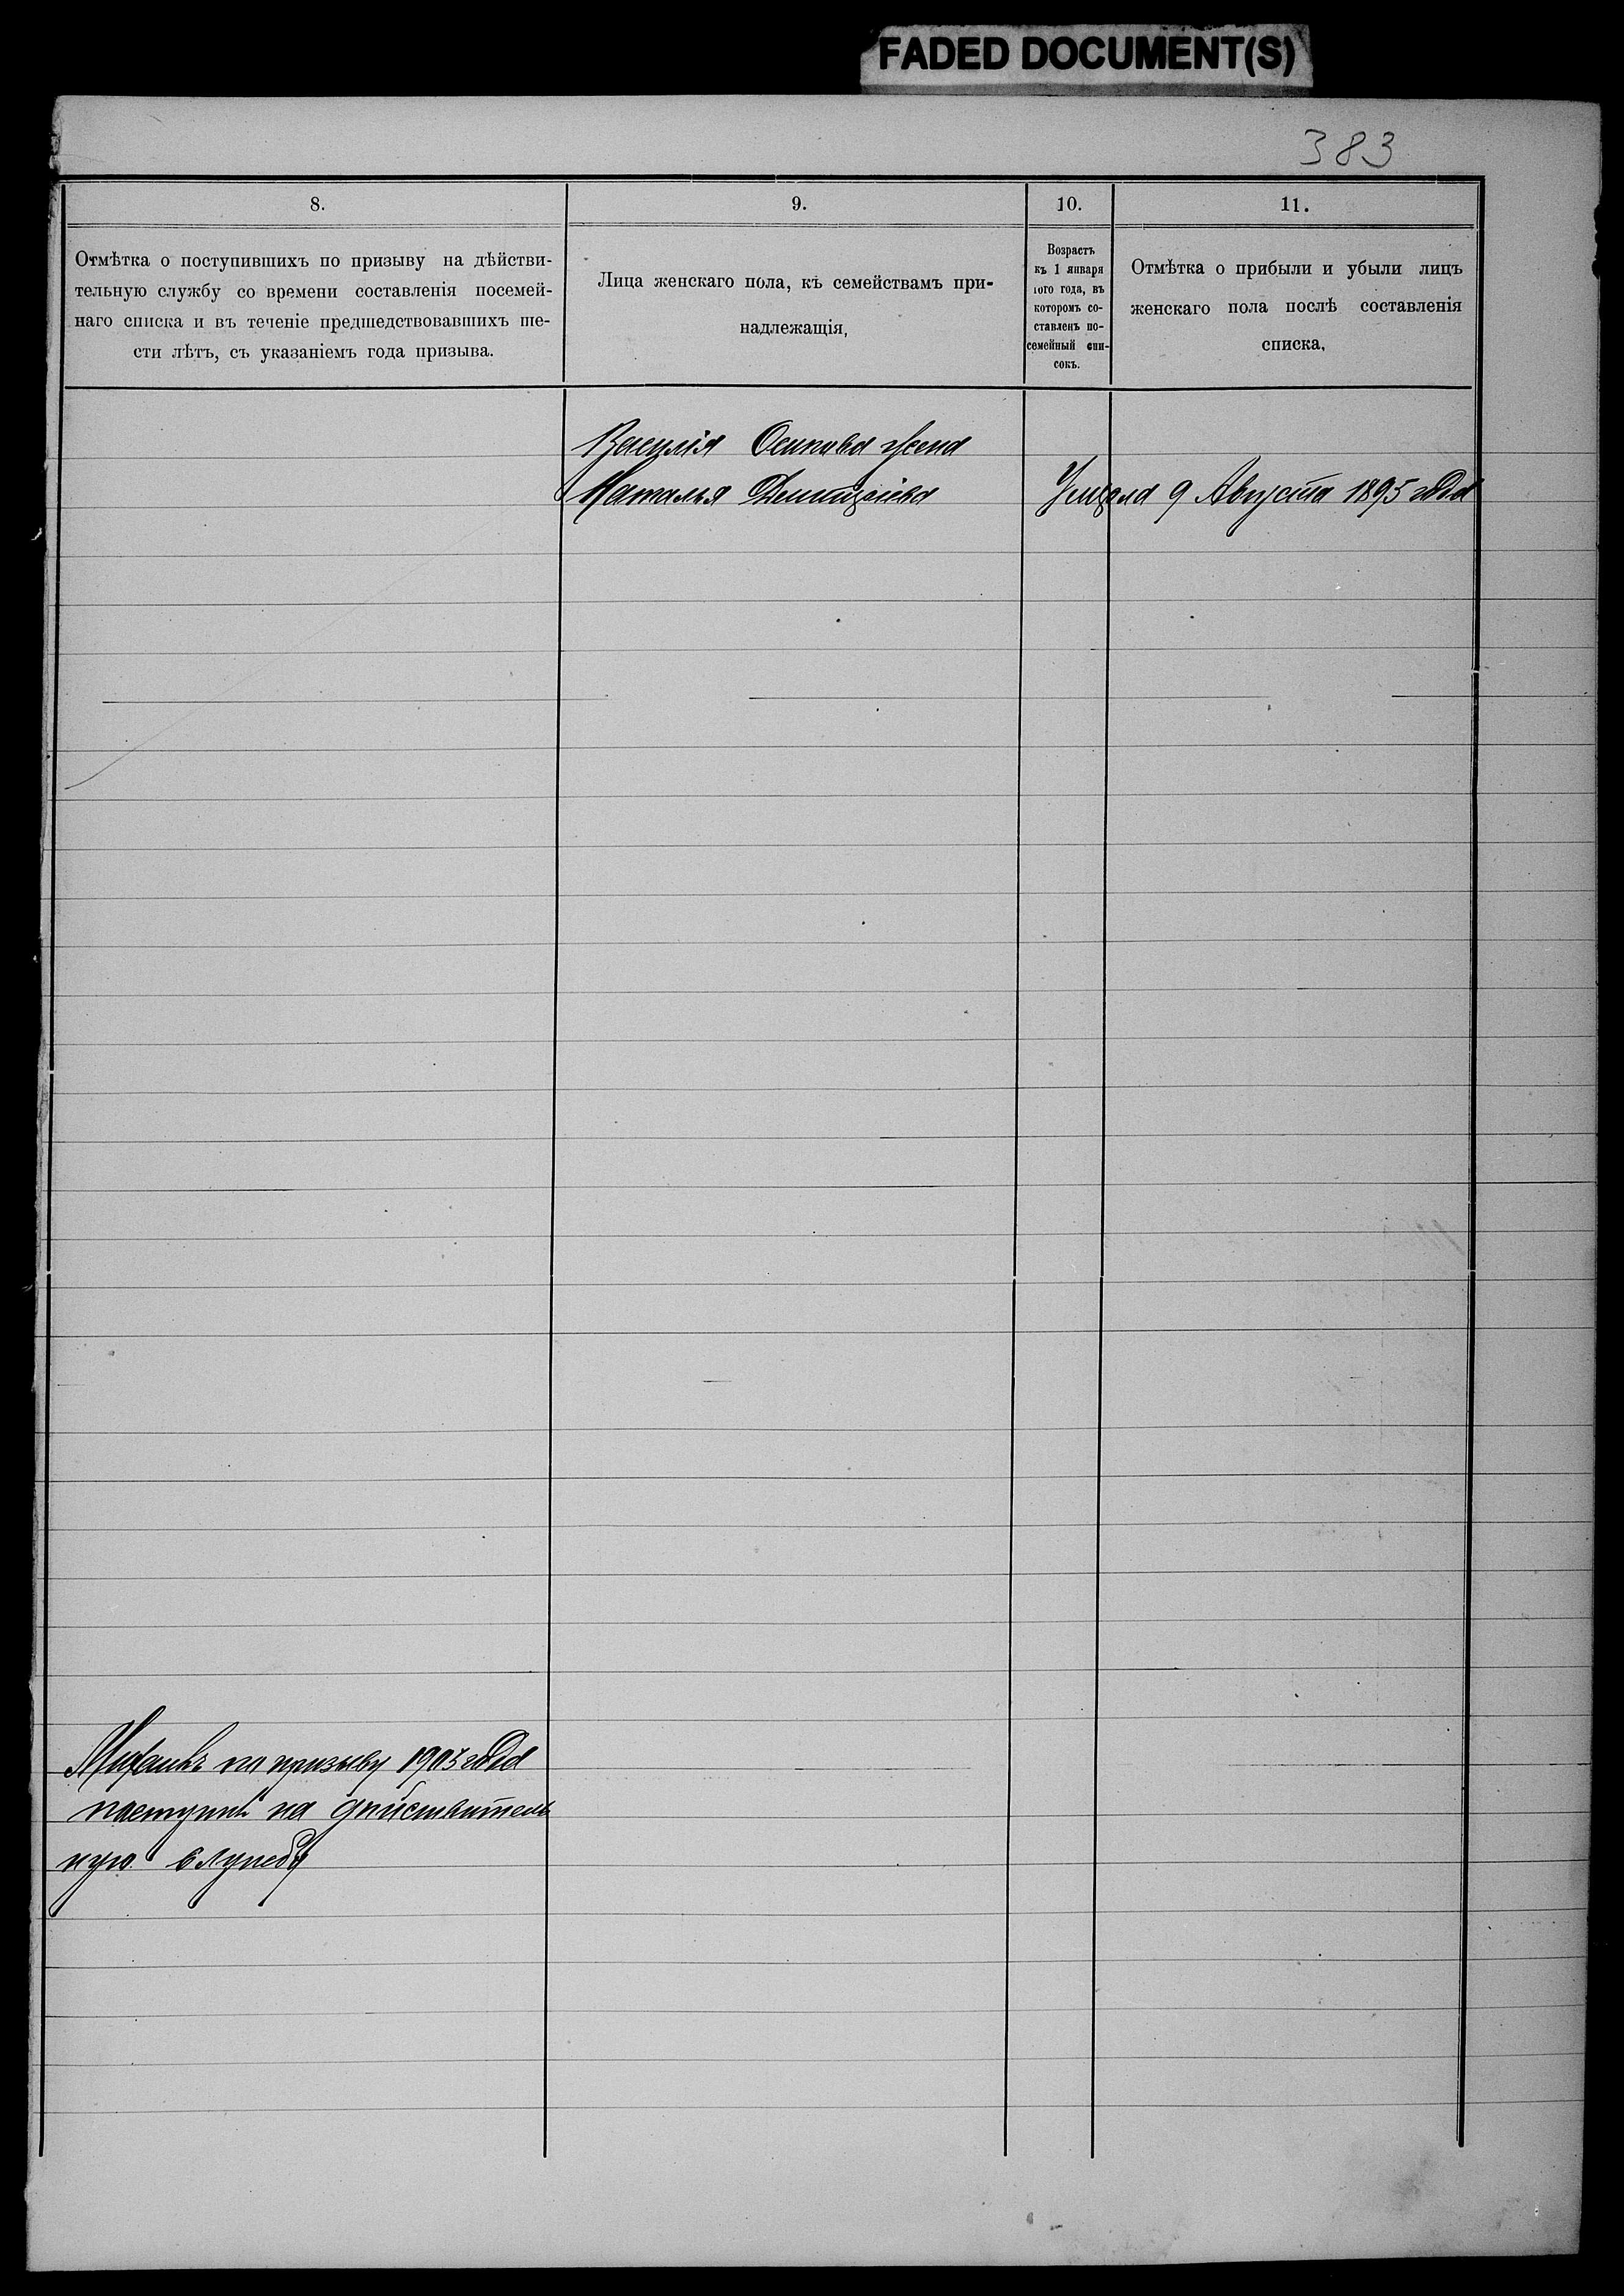 FADED DOCUMENT(S)
383
8.
Отмѣтка о поступившихъ по призыву на дѣйстви-
тельную службу со времени составленія посемей-
наго списка и въ теченіе предшедствовавшихъ ше-
сти лѣтъ, съ указаніемъ года призыва.
9.
Лица женскаго пола, къ семействамъ при-
надлежащія,
10.
Возрастъ
къ 1 января
того года, въ
которомъ со-
ставленъ по-
семейный спи-
сокъ.
11.
Отмѣтка о прибыли и убыли лицъ
женскаго пола послѣ составленія
списка,
Василія Осипова жена
Наталья
Умерла 9 Августа 1895 года
по призыву 1903 года
поступилъ на дѣйствитель
ную службу